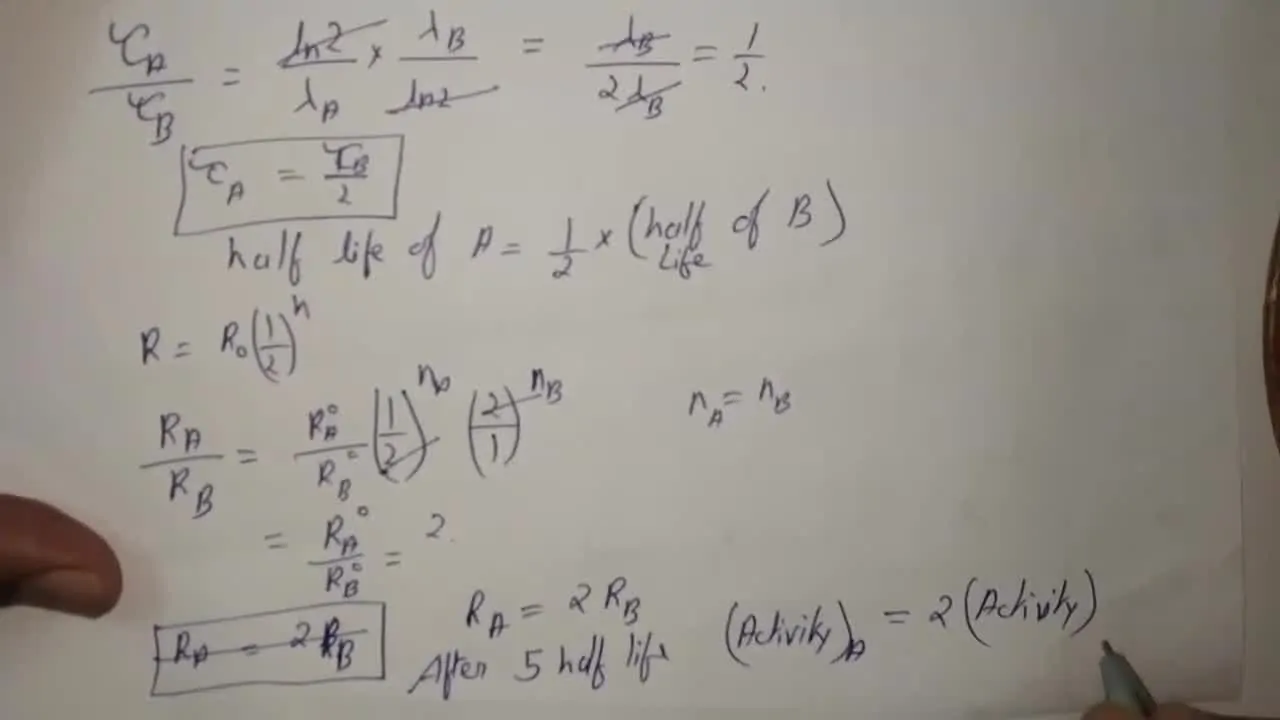 τA/τB = ln2/λA × λB/ln2 = λB/2λB = 1/2.
τA = τB/2
half life of A = 1/2 × (half life of B)
R = R₀(1/2)ⁿ
RA/RB = RA°/RB° (1/2)^nA (2/1)^nB nA = nB
= RA°/RB° = 2.
RA = 2RB
RA = 2 RB
After 5 half life (Activity)A = 2 (Activity)